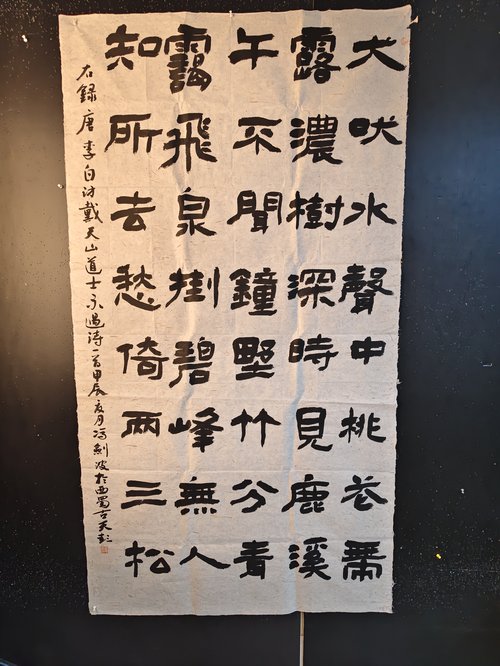 犬吠水聲中桃花帶
露濃樹深時見鹿溪
午不聞鐘墅竹分青
靄飛泉掛碧峰無人
知所去愁倚兩三松
右錄唐李白访戴天山道士不遇诗一首甲辰夏月冯劍波於西蜀古天彭